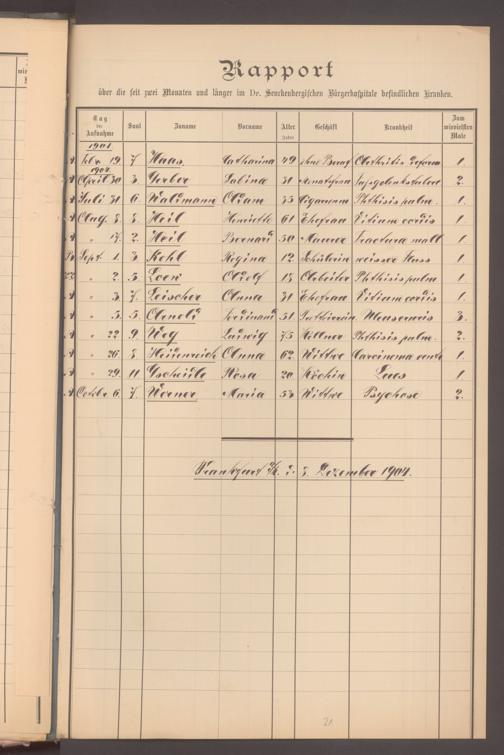 Rapport
über die seit zwei Monaten und länger im Dr. Senckenbergischen Bürgerhospitale befindlichen Kranken.
Tag der Aufnahme Saal Zuname Vorname Alter Jahre Geschäft Krankheit Zum wievielsten Male
1901.
A Febr. 19 7. Haas Catharina 49 ohne Beruf Arthritis deform 1.
1904.
A April 30 3 Gerber Sabina 31 2.
A Juli 31 6 Waldmann Adam 35 Phthisis pulm. 1.
A Aug. 8 8 Heil Henriette 61 Ehefrau Vitium cordis 1.
A " 17. 2. Heil Bernard 50 Maurer Fractura mall 1.
Sept. 1. 3 Kohl Regina 12 Schülerin weisser Fluss 1.
" 2. 5 Loew Adolf 18 Arbeiter Phthisis pulm 1.
A " 3 7. Leischer Anna 31 Ehefrau Vitium cordis 1.
A " 5. 5. Arnold Ferdinand 51 3.
A " 22 9 Weg Ludwig 75 Kellner Phthisis pulm. 2.
A " 26 8 Heidenreich Anna 62 Wittwe Carcinoma 1.
A " 29 11 Gscheidle Rosa 20 Köchin Lues 1.
A Octobr 6. 7. Werner Maria 53 Wittwe Psychose 2.
Frankfurt a/M. d. 3. Dezember 1904.
21